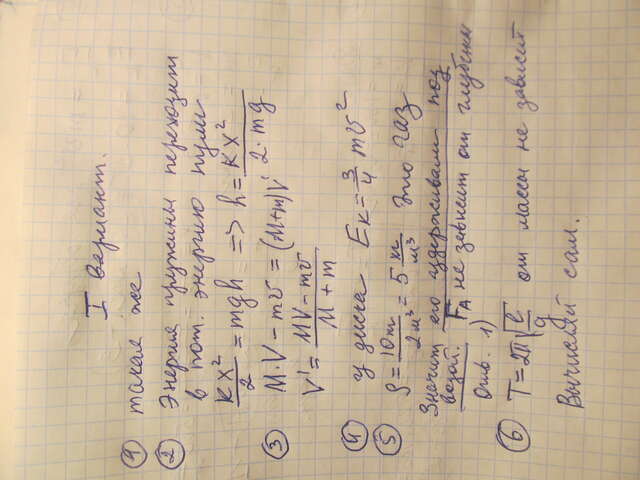 I вариант.
① такая же
② Энергия пружины переходит
в пот. энергию пули
KX²/2 = mgh => h = KX²/2·mg
③ M·V − mv = (M+m)V'
V' = MV − mv/M + m
④ у диска Eк = 3/4 mv²
⑤ ρ = 10кг/2м³ = 5 кг/м³ Это газ
Значит его удерживали под
водой. FA не зависит от глубины
Отв. 1)
⑥ T = 2π√l/g от массы не зависит
Вычисляй сам.